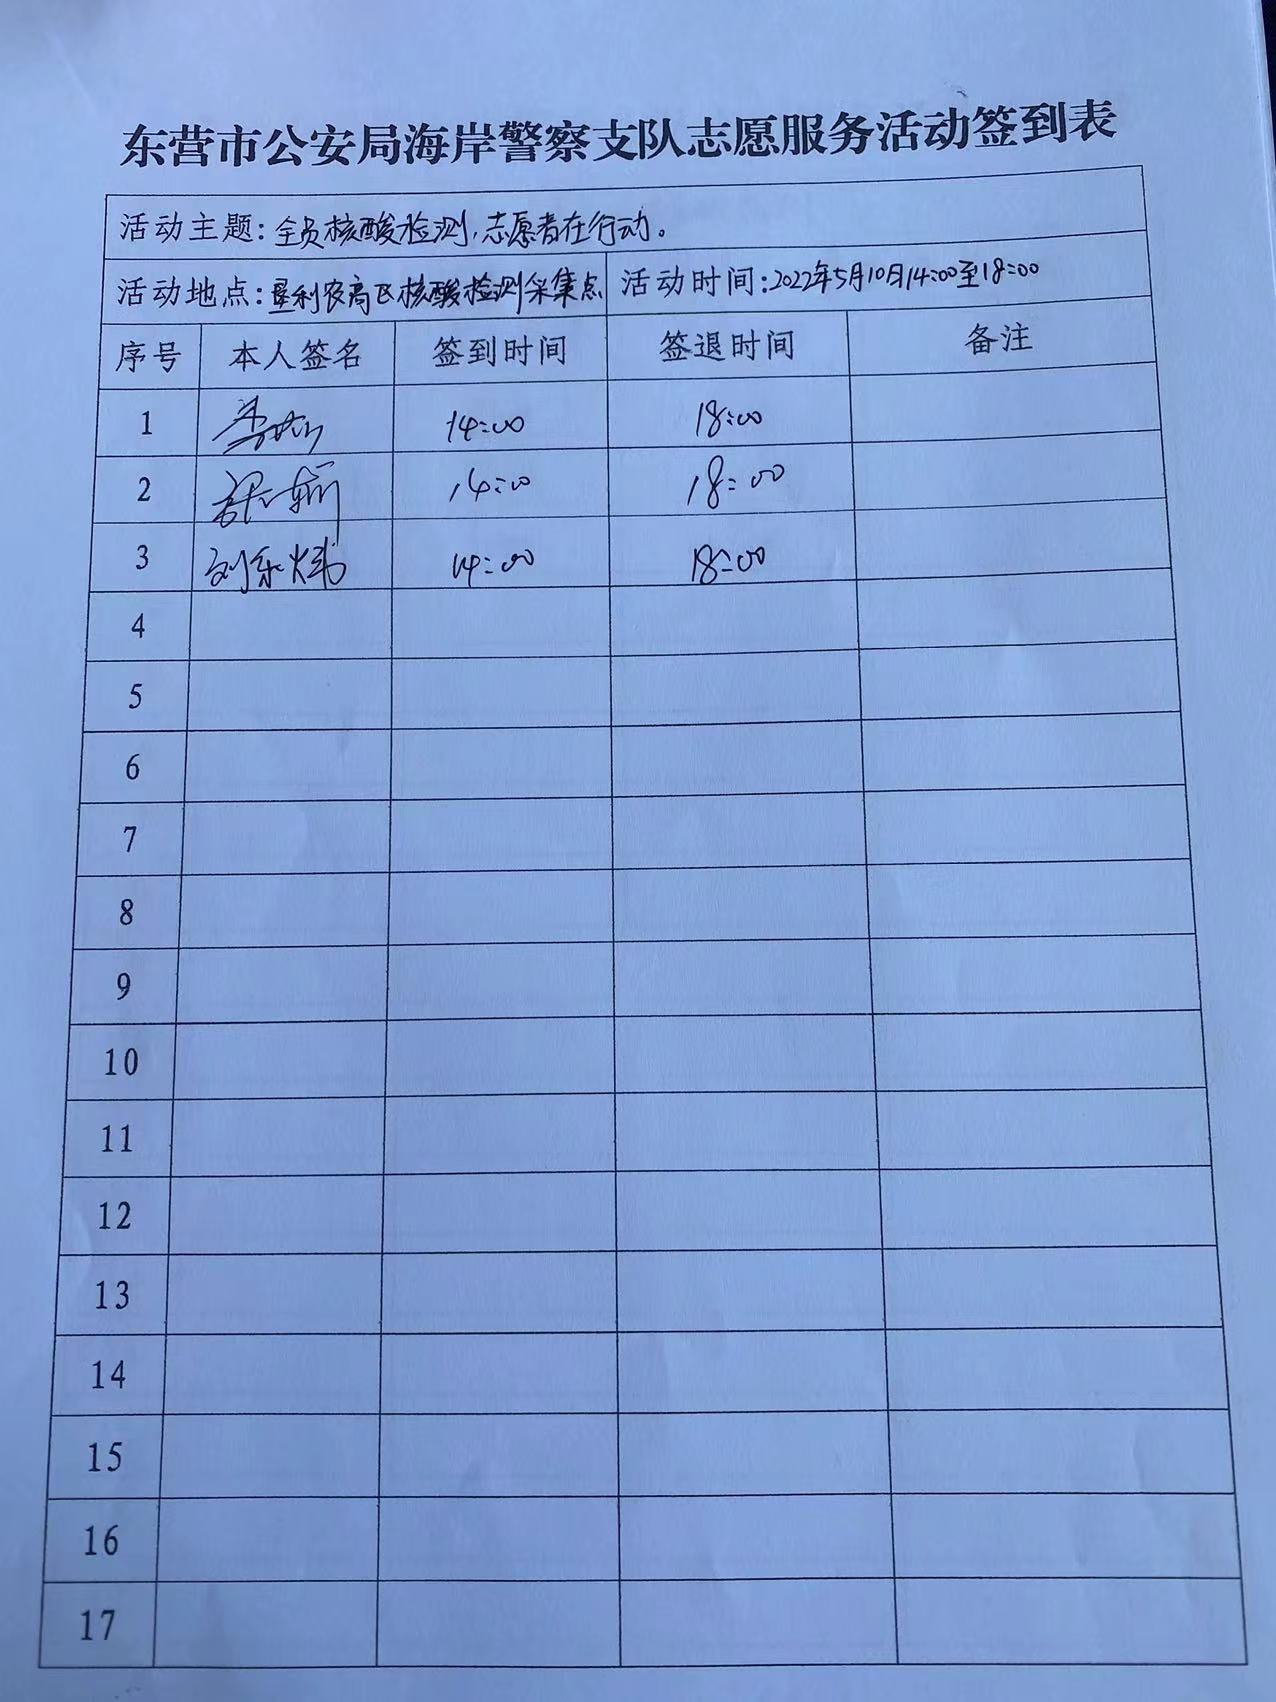 东营市公安局海岸警察支队志愿服务活动签到表
活动主题：全员核酸检测，志愿者在行动。
活动地点：垦利农高区核酸检测采集点 活动时间：2022年5月10日14:00至18:00
序号 本人签名 签到时间 签退时间 备注
1 14:00 18:00
2 14:00 18:00
3 刘东炜 14:00 18:00
4
5
6
7
8
9
10
11
12
13
14
15
16
17